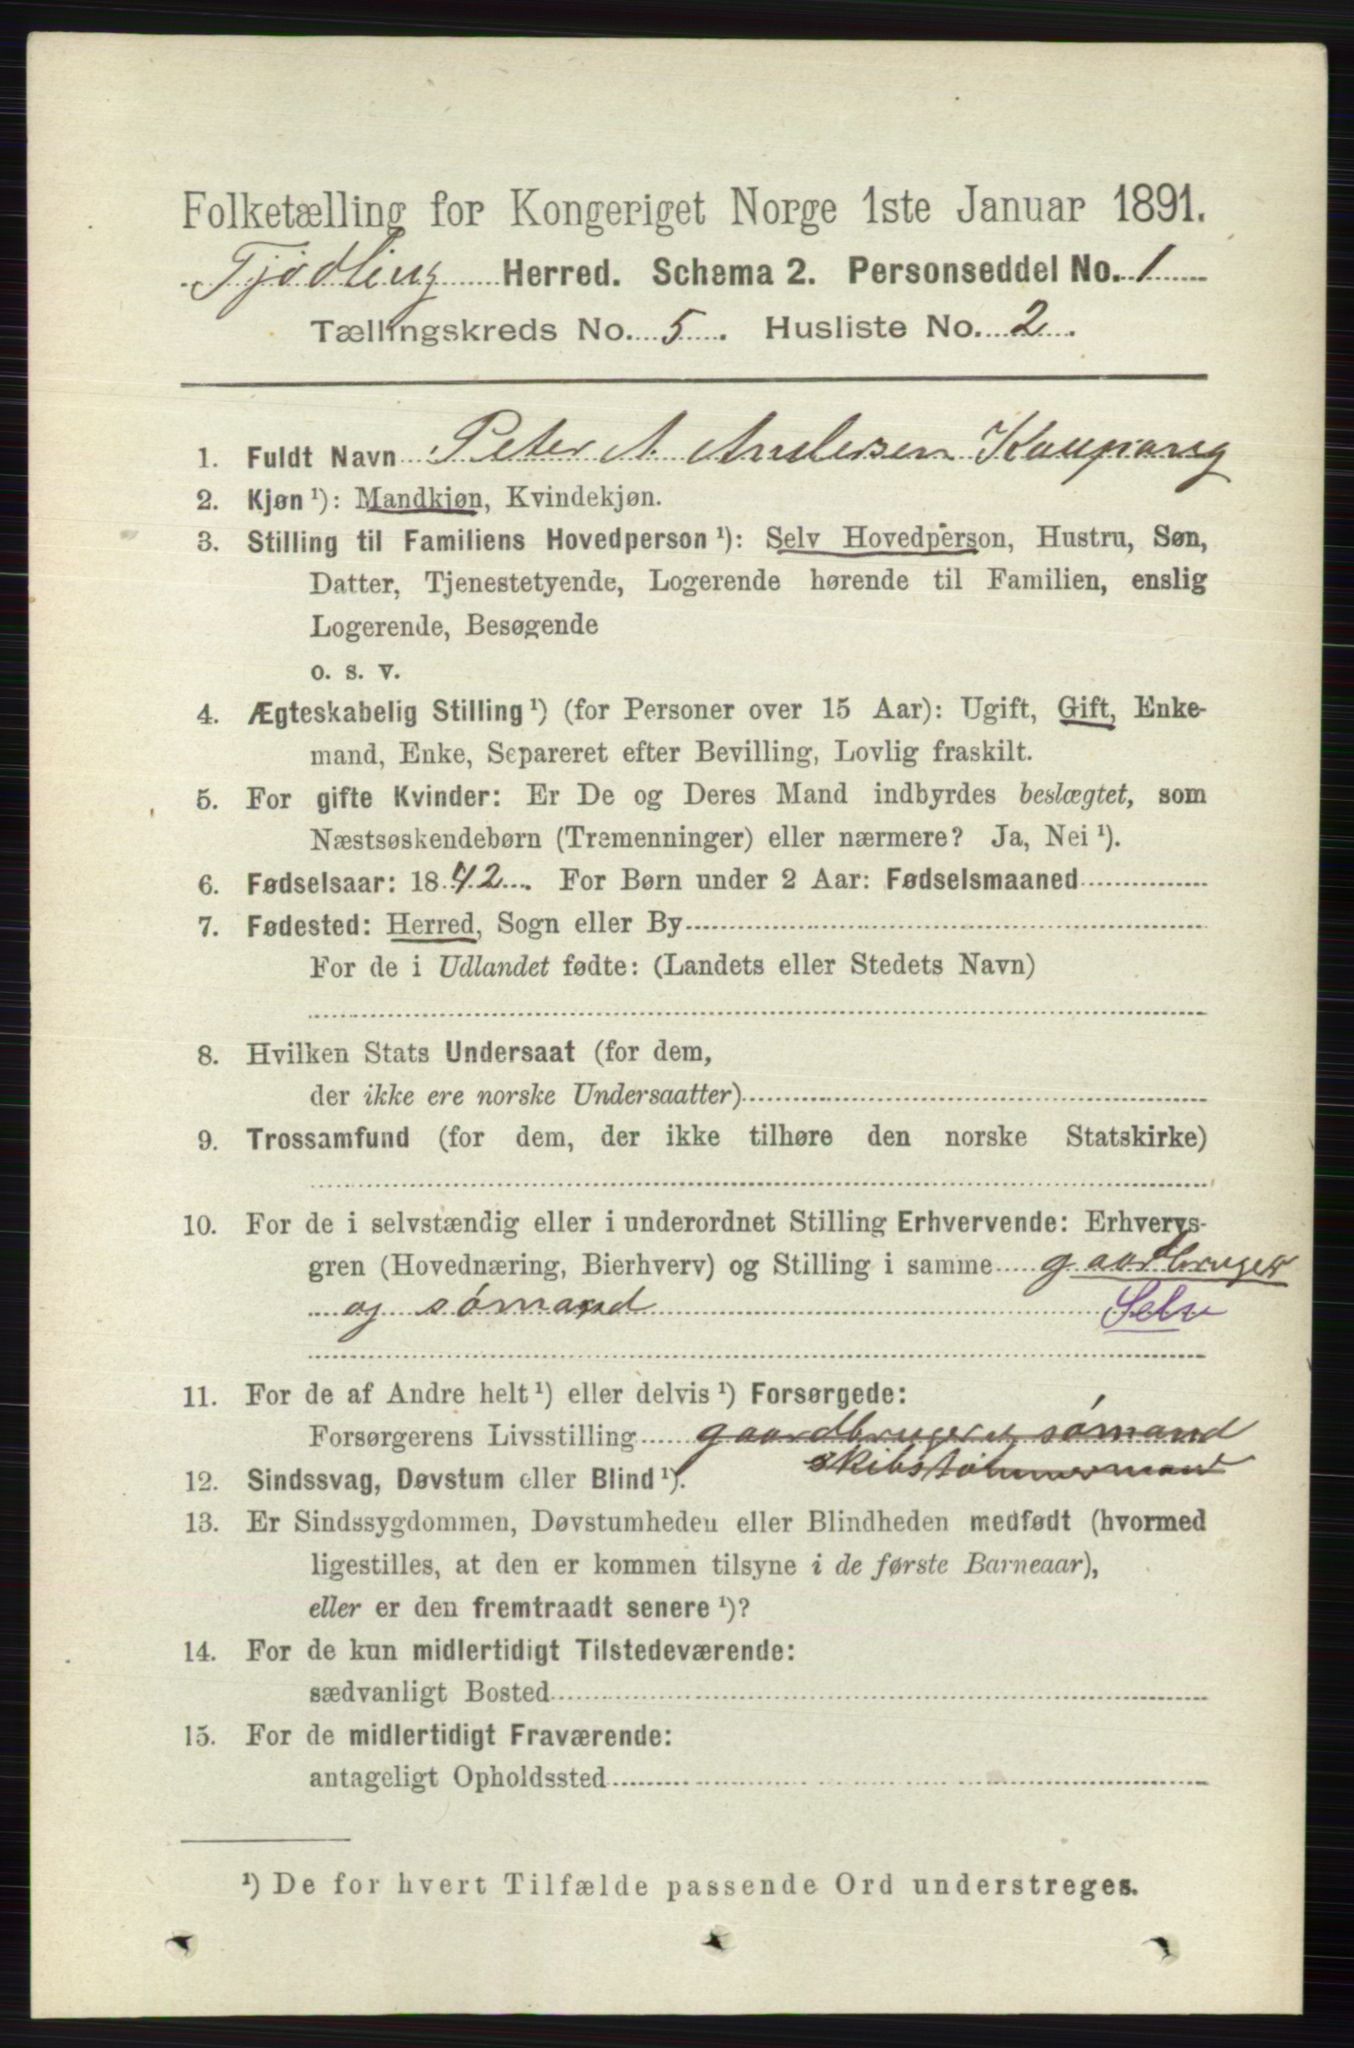 Folketælling for Kongeriget Norge 1ste Januar 1891.
Tjødling Herred. Schema 2. Personseddel No. 1
Tællingskreds No. 5. Husliste No. 2.
1. Fuldt Navn Peter A. Andersen Kaupang
2. Kjøn ¹): Mandkjøn, Kvindekjøn.
3. Stilling til Familiens Hovedperson ¹): Selv Hovedperson, Hustru, Søn,
Datter, Tjenestetyende, Logerende hørende til Familien, enslig
Logerende, Besøgende
o. s. v.
4. Ægteskabelig Stilling ¹) (for Personer over 15 Aar): Ugift, Gift, Enke-
mand, Enke, Separeret efter Bevilling, Lovlig fraskilt.
5. For gifte Kvinder: Er De og Deres Mand indbyrdes beslægtet, som
Næstsøskendebørn (Tremenninger) eller nærmere? Ja, Nei ¹).
6. Fødselsaar: 1842. For Børn under 2 Aar: Fødselsmaaned
7. Fødested: Herred, Sogn eller By
For de i Udlandet fødte: (Landets eller Stedets Navn)
8. Hvilken Stats Undersaat (for dem,
der ikke ere norske Undersaatter)
9. Trossamfund (for dem, der ikke tilhøre den norske Statskirke)
10. For de i selvstændig eller i underordnet Stilling Erhvervende: Erhvervs-
gren (Hovednæring, Bierhverv) og Stilling i samme gaardbruger
og sømand Selv
11. For de af Andre helt ¹) eller delvis ¹) Forsørgede:
Forsørgerens Livsstilling gaardbruger og sømand
skibstømmermand
12. Sindssvag, Døvstum eller Blind ¹).
13. Er Sindssygdommen, Døvstumheden eller Blindheden medfødt (hvormed
ligestilles, at den er kommen tilsyne i de første Barneaar),
eller er den fremtraadt senere ¹)?
14. For de kun midlertidigt Tilstedeværende:
sædvanligt Bosted
15. For de midlertidigt Fraværende:
antageligt Opholdssted
¹) De for hvert Tilfælde passende Ord understreges.